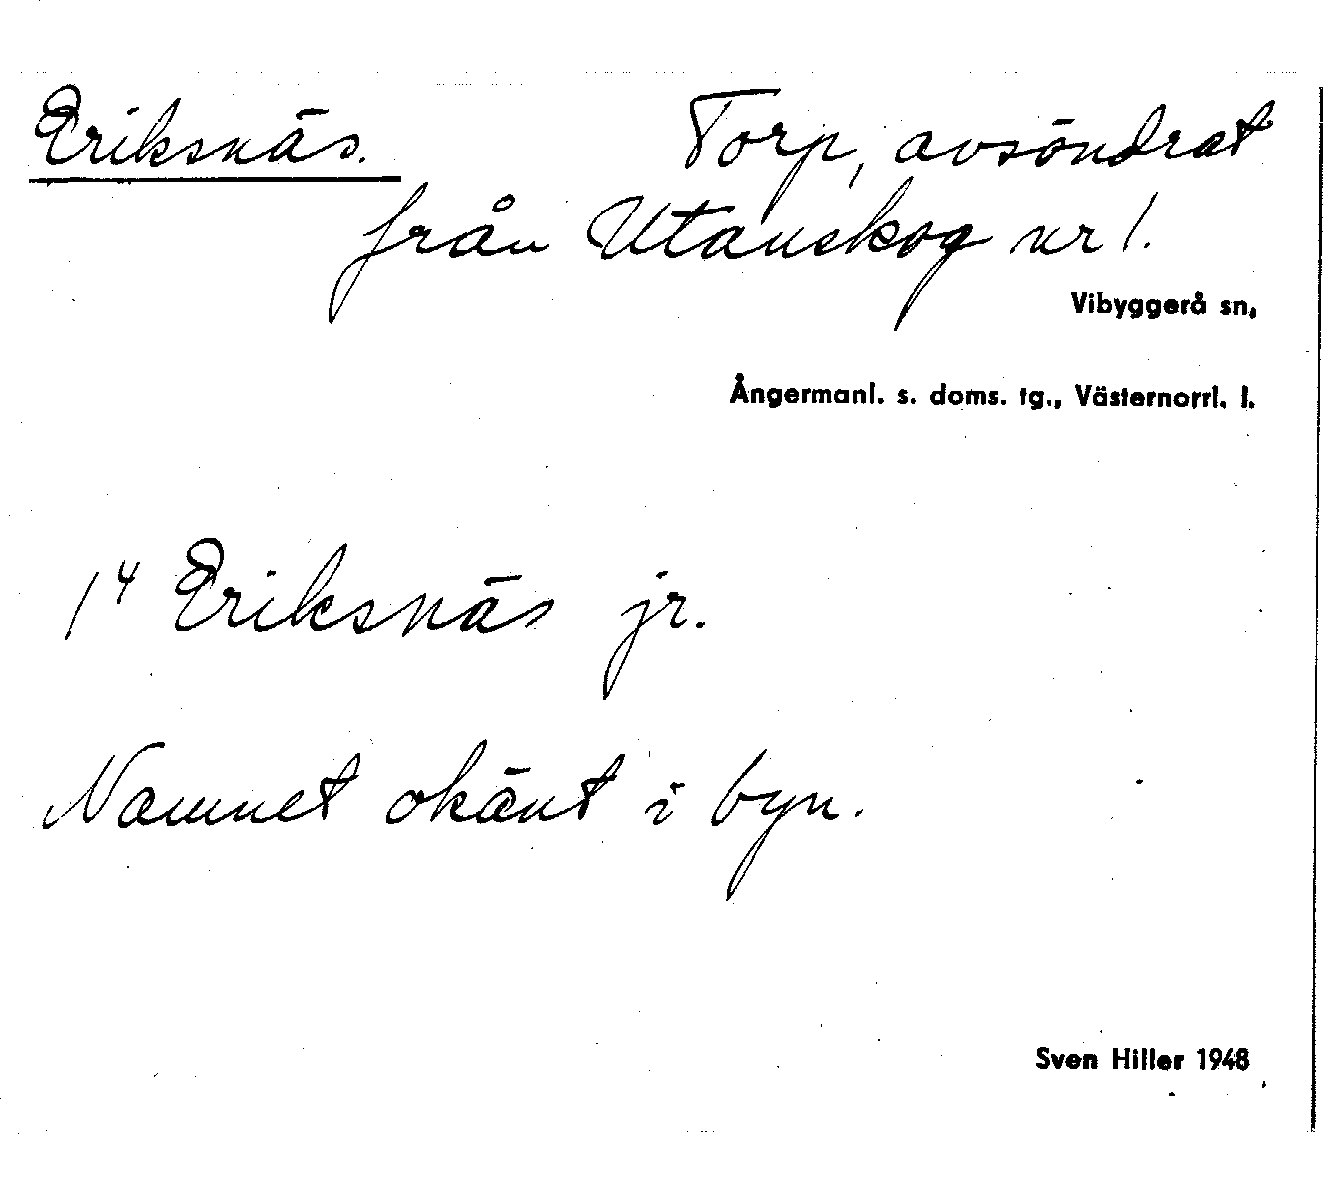 Eriksnäs. Torp, avsöndrat
från Utanskog nr 1.
Vibyggerå sn,
Ångermanl. s. doms. tg., Västernorrl. l.
1⁴ Eriksnäs jr.
Namnet okänt i byn.
Sven Hiller 1948